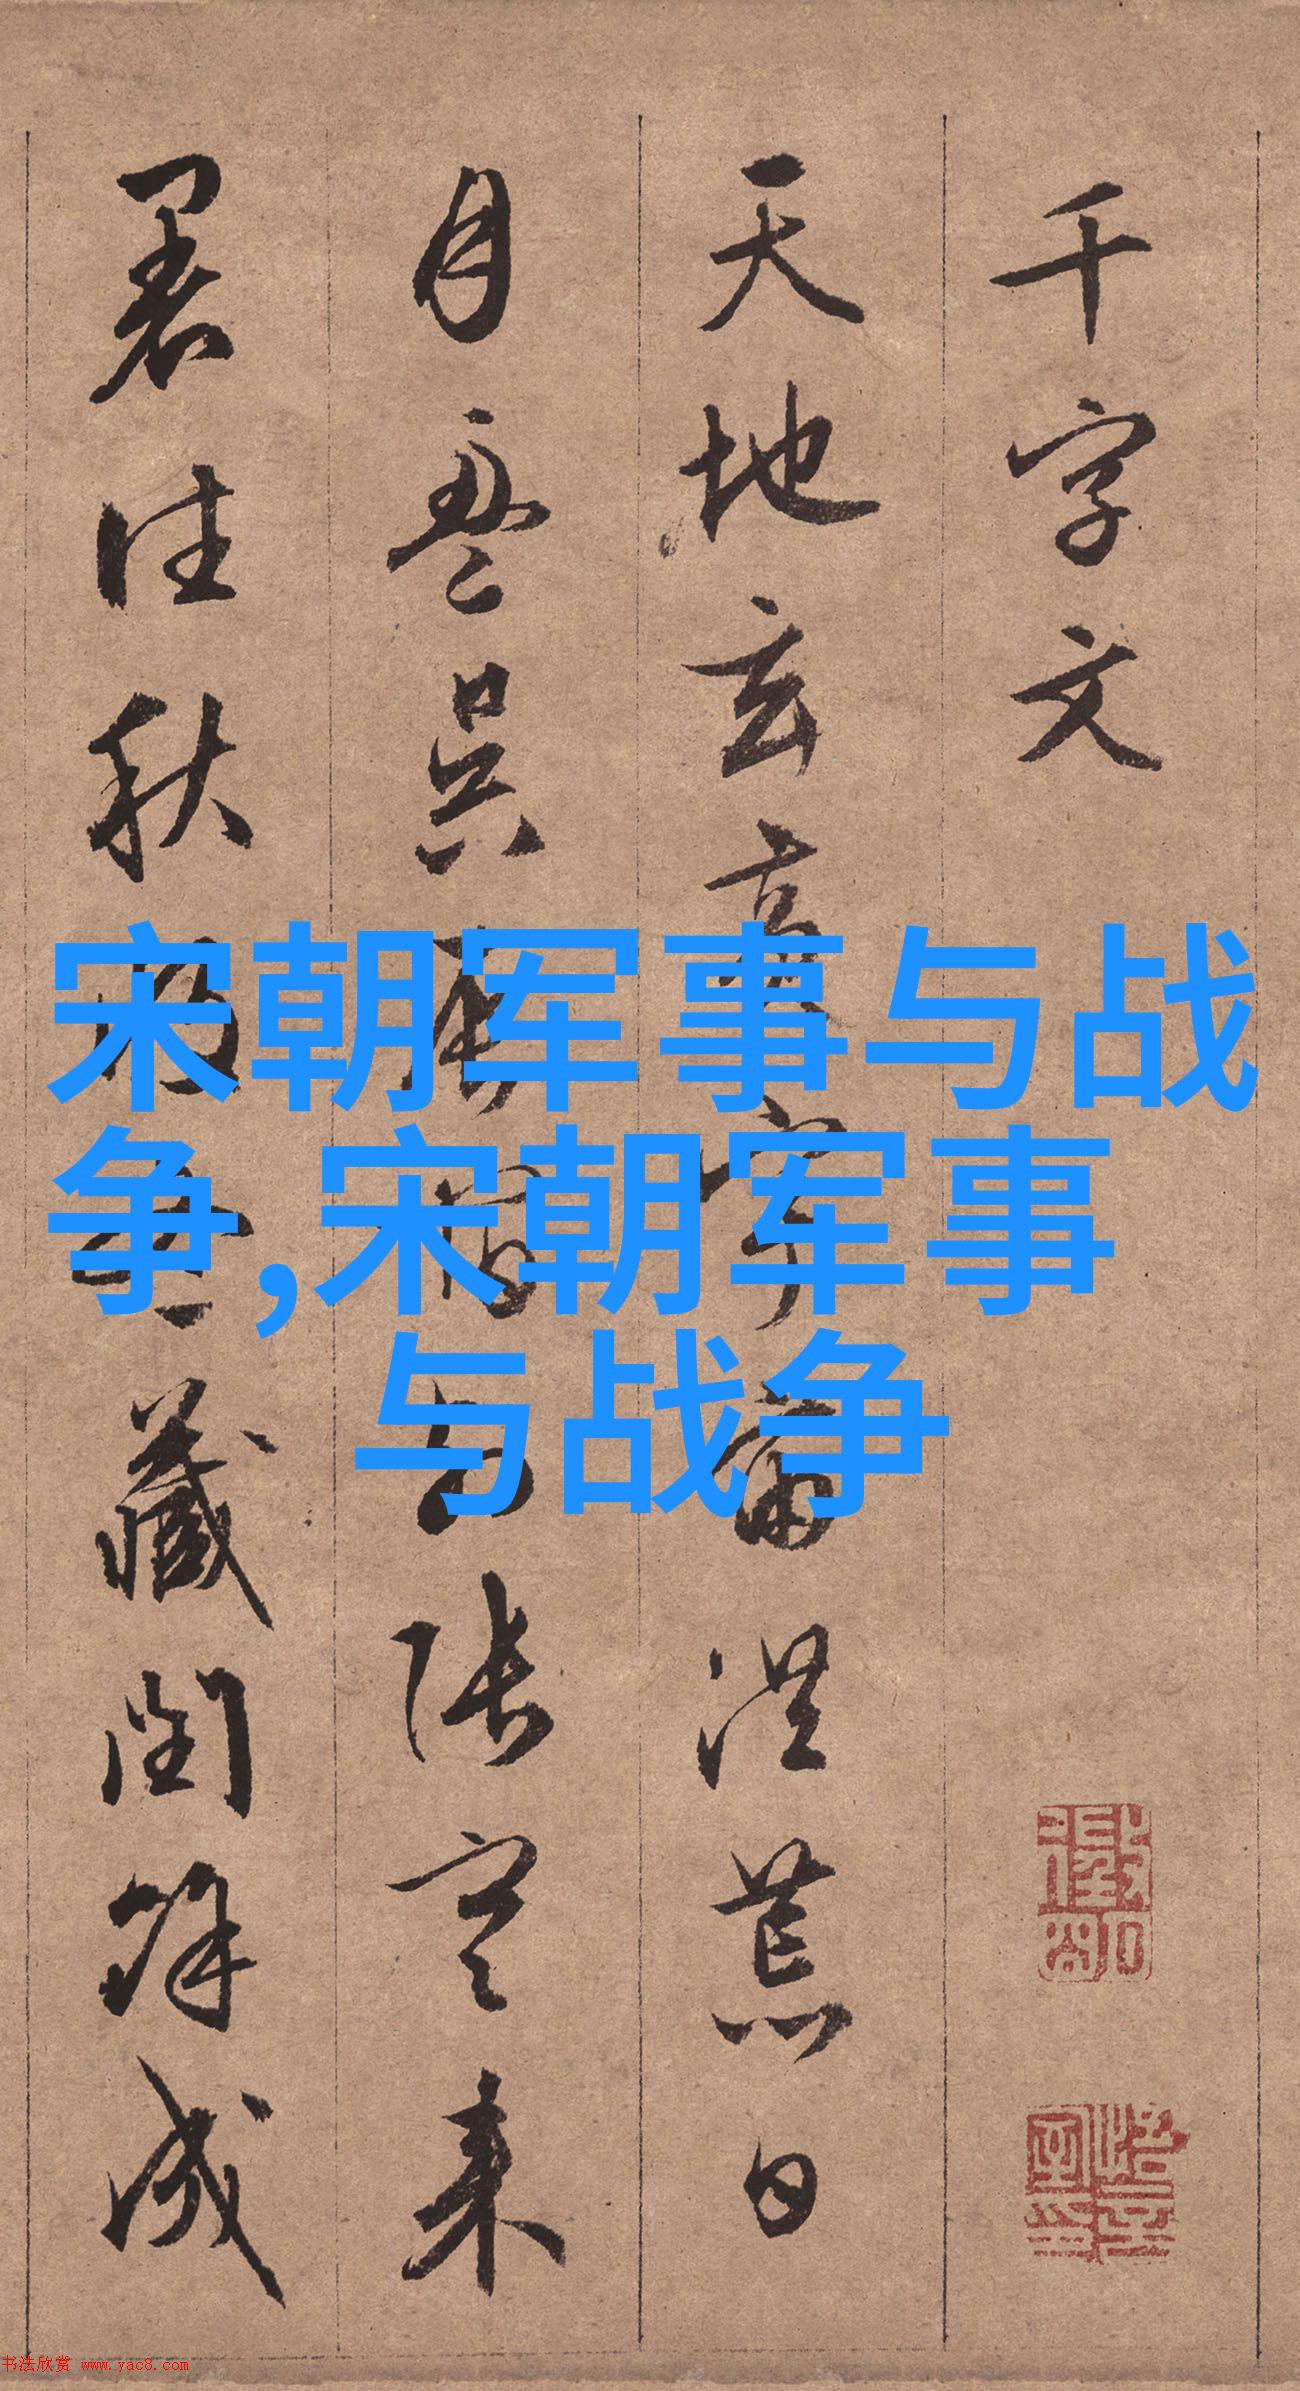 千字文
天地玄黄宇宙洪荒日
月盈昃辰宿列張寒来
暑往秋收冬藏閏餘成
宋朝军事与战
争,宋朝军事
与战争
书法欣赏 www.yac8.com